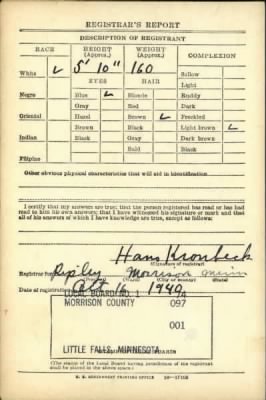 REGISTRAR'S REPORT
DESCRIPTION OF REGISTRANT
RACE HEIGHT (Approx.) WEIGHT (Approx.) COMPLEXION
White ✓ 5' 10" 160 Sallow
EYES HAIR Light
Negro Blue ✓ Blonde Ruddy
Gray Red Dark
Oriental Hazel Brown ✓ Freckled
Brown Black Light brown ✓
Indian Black Gray Dark brown
Bald Black
Filipino
Other obvious physical characteristics that will aid in identification
I certify that my answers are true; that the person registered has read or has had
read to him his own answers; that I have witnessed his signature or mark and that
all of his answers of which I have knowledge are true, except as follows:
Hans Kronbeck
(Signature of registrar)
Registrar for Ripley Morrison Minn
Date of registration Oct 16 1940
LOCAL BOARD NO. 1
MORRISON COUNTY 097
001
LITTLE FALLS, MINNESOTA
(The stamp of the Local Board having jurisdiction of the registrant
shall be placed in the above space.)
U. S. GOVERNMENT PRINTING OFFICE